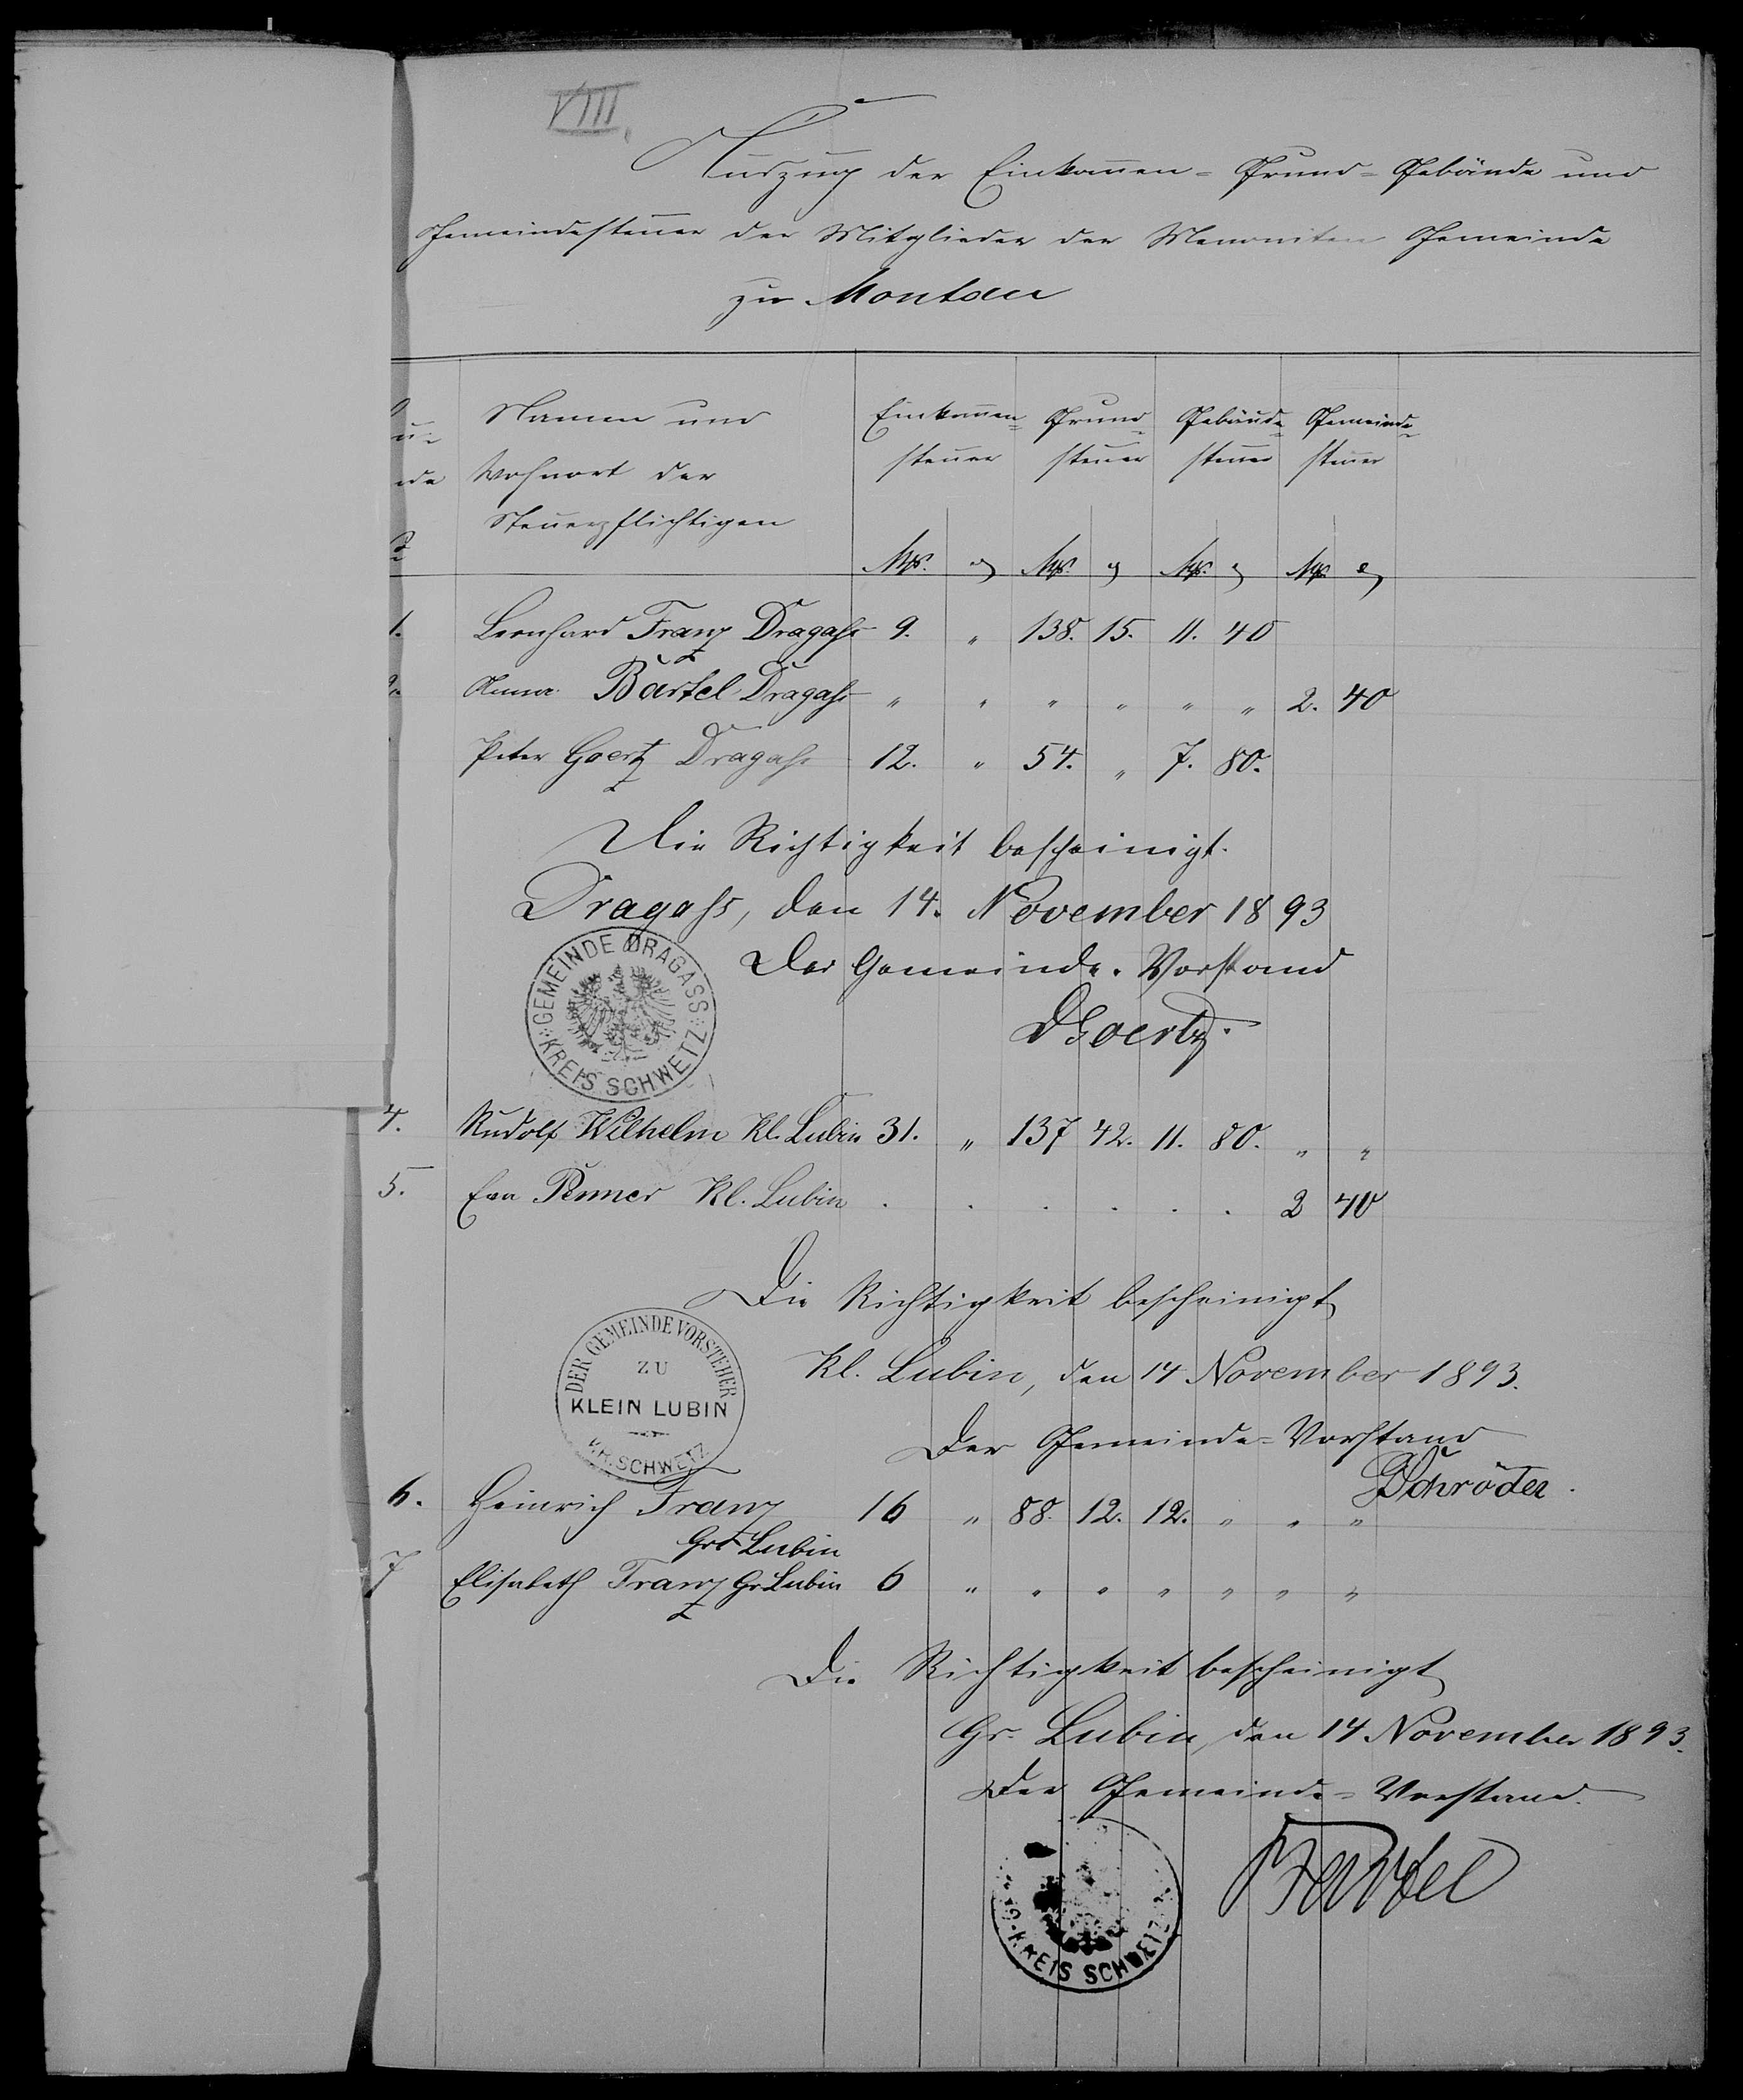 VIII.
Auszug der Einkom̄en= Grund= Gebäude und
Gemeindesteuer der Mitglieder der Menoniten Gemeinde
zu Montau
Namen und Einkom̄en= Grund= Gebäude= Gemeinde=
Wohnort der steuer steuer steuer steuer
Steuerpflichtigen
Mk. ₰ Mk. ₰ Mk. ₰ Mk. ₰
1. Leonhard Franz Dragass 9. " 138. 15. 11. 40
2. Anna Bartel Dragass " " " " " " 2. 40
Peter Goertz Dragass 12. " 54. " 7. 80.
Die Richtigkeit bescheinigt.
Dragass, den 14. November 1893
GEMEINDE DRAGASS
KREIS SCHWETZ
Der Gemeinde-Vorstand
DGoertz.
4. Rudolf Wilhelm Kl. Lubin 31. " 137 42. 11. 80. " "
5. Eva Penner Kl. Lubin . . . . . . 2 40
Die Richtigkeit bescheinigt
DER GEMEINDEVORSTEHER
ZU
KLEIN LUBIN
KR. SCHWETZ
Kl. Lubin, den 14 November 1893.
Der Gemeinde=Vorstand
Schröder.
6. Heinrich Franz 16 " 88. 12. 12. " " "
Gr Lubin
7 Elisabeth Franz Gr Lubin 6 " " " " " " "
Die Richtigkeit bescheinigt
Gr. Lubin, den 14 November 1893.
Der Gemeinde=Vorstand.
Bartel
KREIS SCHWETZ